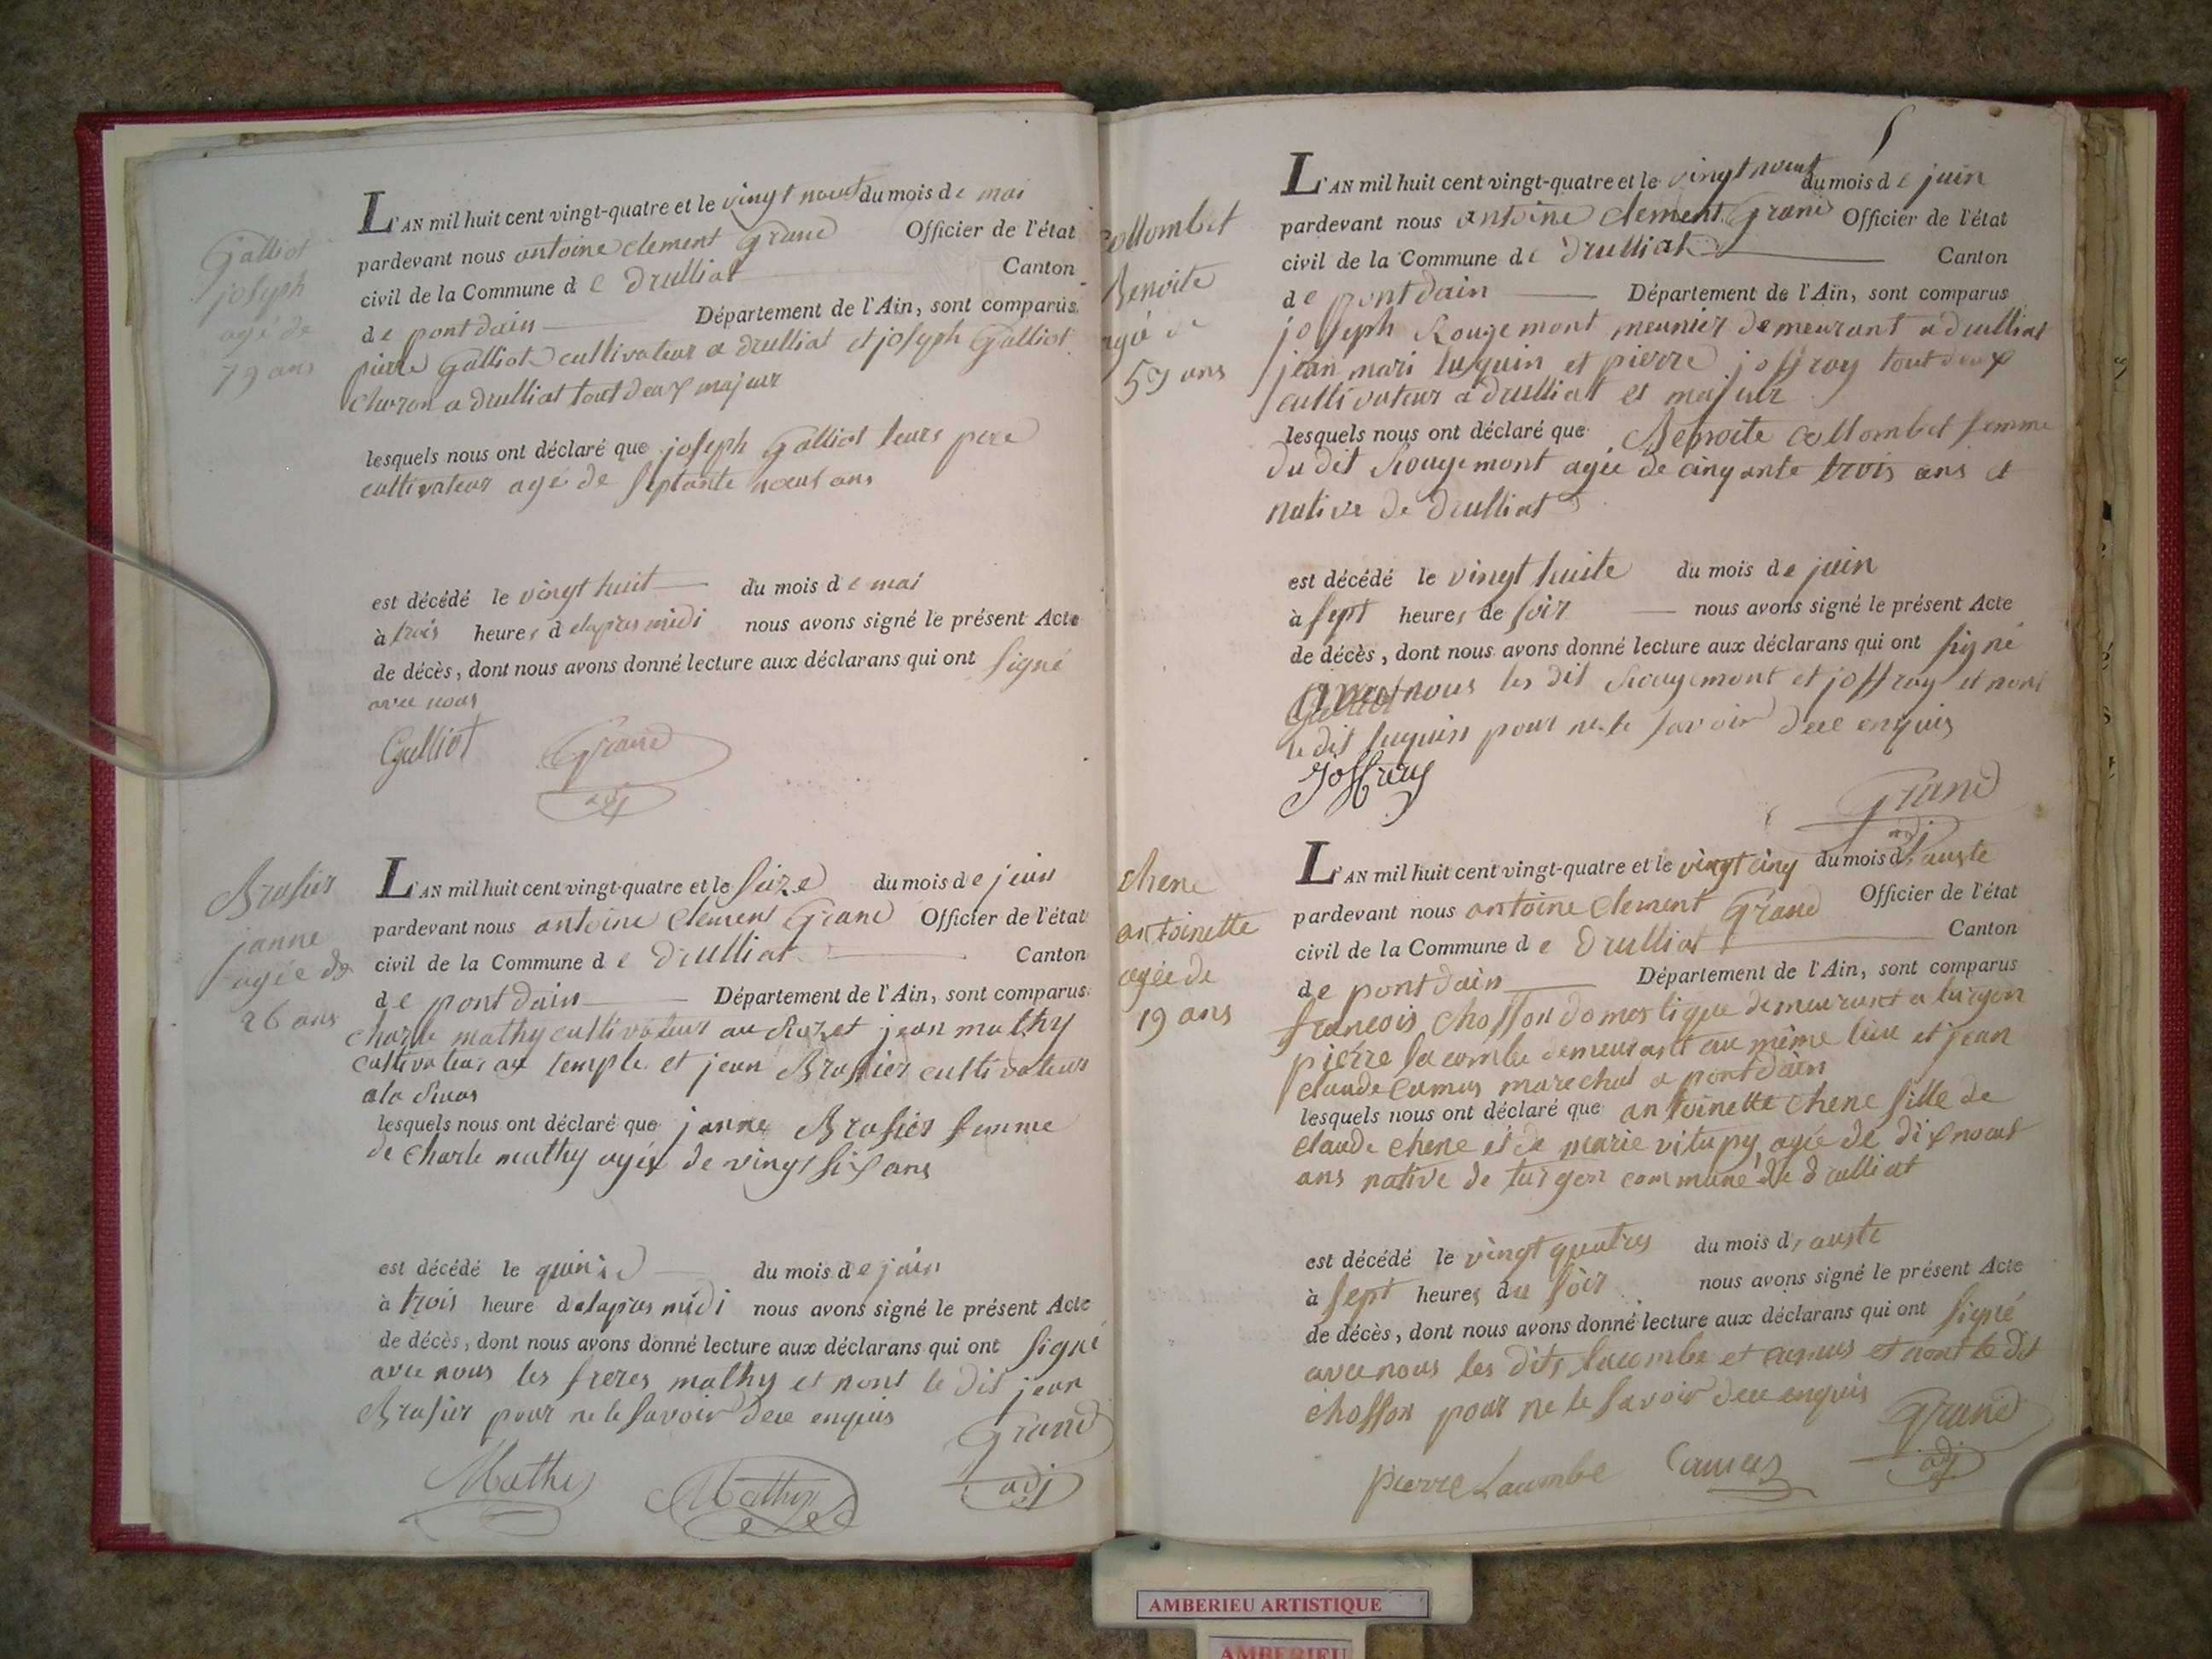 Galliot
joseph
agé de
79 ans
L'AN mil huit cent vingt-quatre et le vingt neuf du mois de mai
pardevant nous antoine clement Grand Officier de l'état
civil de la Commune de Drulliat Canton
de pontdain Département de l'Ain, sont comparus
pierre Galliot cultivateur a drulliat et joseph Galliot
a drulliat tout deux majeur
lesquels nous ont déclaré que joseph Galliot leurs pere
cultivateur agé de septante neuf ans
est décédé le vingt huit du mois de mai
à trois heures delapres midi nous avons signé le présent Acte
de décès, dont nous avons donné lecture aux déclarans qui ont signé
avec nous
Galliot Grand
adj
Brasier
janne
agée de
26 ans
L'AN mil huit cent vingt-quatre et le seize du mois de juin
pardevant nous antoine clement Grand Officier de l'état
civil de la Commune de Drulliat Canton
de pontdain Département de l'Ain, sont comparus
charle mathy cultivateur au et jean mathy
cultivateur au temple et jean Brasier cultivateur
a la
lesquels nous ont déclaré que janne Brasier femme
de charle mathy agée de vingt six ans
est décédé le quinze du mois de juin
à trois heure delapres midi nous avons signé le présent Acte
de décès, dont nous avons donné lecture aux déclarans qui ont signé
avec nous les freres mathy et nont le dit jean
Brasier pour ne le savoir dece enquis
Grand
Mathy Mathy adj
collombet
Benoite
agé de
53 ans
L'AN mil huit cent vingt-quatre et le vingt neuf du mois de juin
pardevant nous antoine clement Grand Officier de l'état
civil de la Commune de Drulliat Canton
de pontdain Département de l'Ain, sont comparus
joseph Rougemont meunier demeurant a drulliat
jean mari luquin et pierre joffray tout deux
cultivateur a drulliat et majeur
lesquels nous ont déclaré que Benoite collombet femme
du dit Rougemont agée de cinqante trois ans et
native de drulliat
est décédé le vingt huite du mois de juin
à sept heures de soir nous avons signé le présent Acte
de décès, dont nous avons donné lecture aux déclarans qui ont signé
avec nous les dit Rougemont et joffray et nont
le dit luquin pour ne le savoir dece enquis
Joffray
Grand
adj
chene
antoinette
agée de
19 ans
L'AN mil huit cent vingt-quatre et le vingt cinq du mois d'auste
pardevant nous antoine clement Grand Officier de l'état
civil de la Commune de Drulliat Canton
de pontdain Département de l'Ain, sont comparus
francois chosson domestique demeurant a turgon
pierre lacombe demeurant au même lieu et jean
claude camus marechal a pontdain
lesquels nous ont déclaré que antoinette chene fille de
claude chene et de marie vitupy agée de dix neuf
ans native de turgon commune de drulliat
est décédé le vingt quatres du mois d'auste
à sept heures du soir nous avons signé le présent Acte
de décès, dont nous avons donné lecture aux déclarans qui ont signé
avec nous les dits lacombe et camus et nont le dit
chosson pour ne le savoir dece enquis
Grand
pierre Lacombe Camus adj
AMBERIEU ARTISTIQUE
AMBERIEU